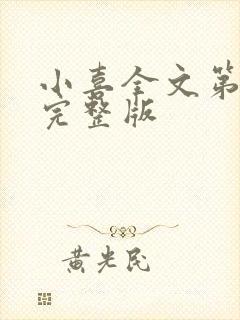 小喜全文第
完整版
黄光民